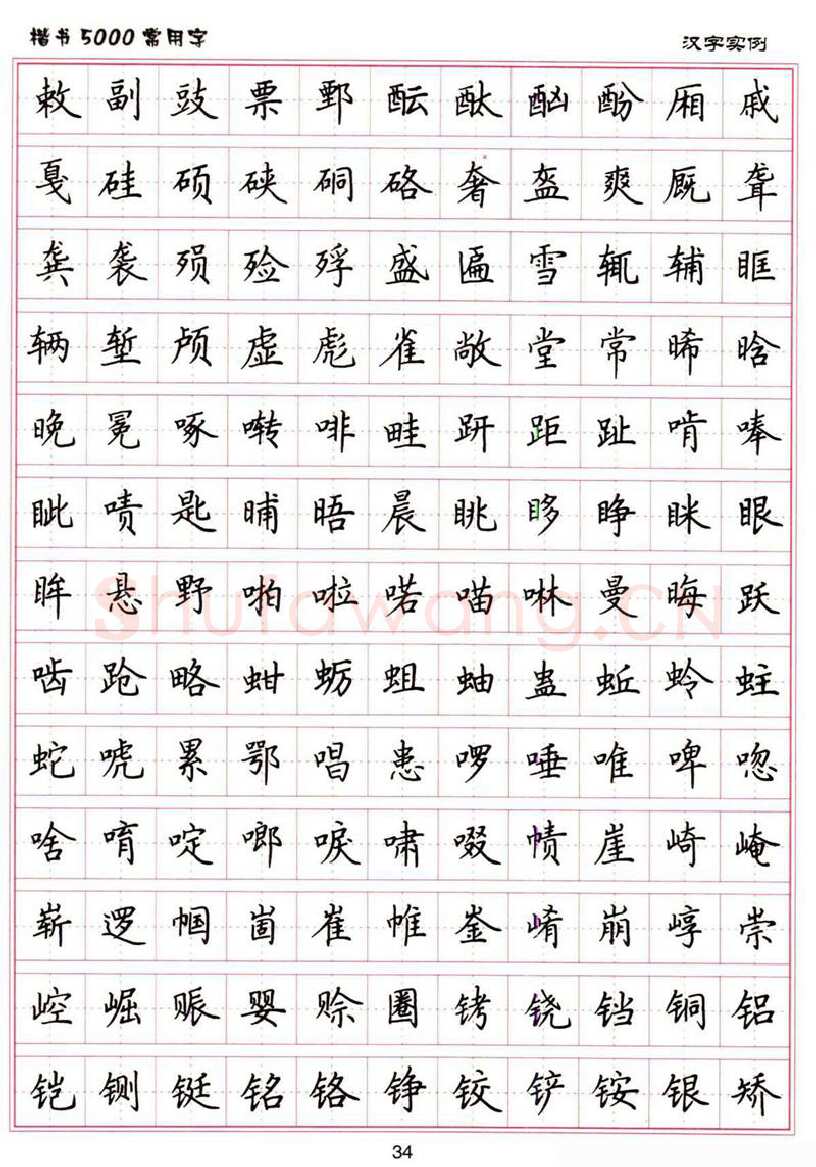 楷书5000常用字
汉字实例
敕副豉票鄄酝酞酗酚厢戚
戛硅硕硖硐硌奢盔爽厩聋
龚袭殒殓殍盛匾雪辄辅眶
辆堑颅虚彪雀敞堂常晞晗
晚冕啄啭啡畦趼距趾啃唪
眦啧匙晡晤晨眺眵睁眯眼
眸悬野啪啦喏喵啉曼晦跃
啮跄略蚶蛎蛆蚰蛊蚯蛉蛀
蛇唬累鄂唱患啰唾唯啤唿
啥唷啶啷唳啸啜帻崖崎崦
崭逻帼崮崔帷崟崤崩崞崇
崆崛赈婴赊圈铐铙铛铜铝
铠铡铤铭铬铮铰铲铵银矫
Shufawang.CN
34